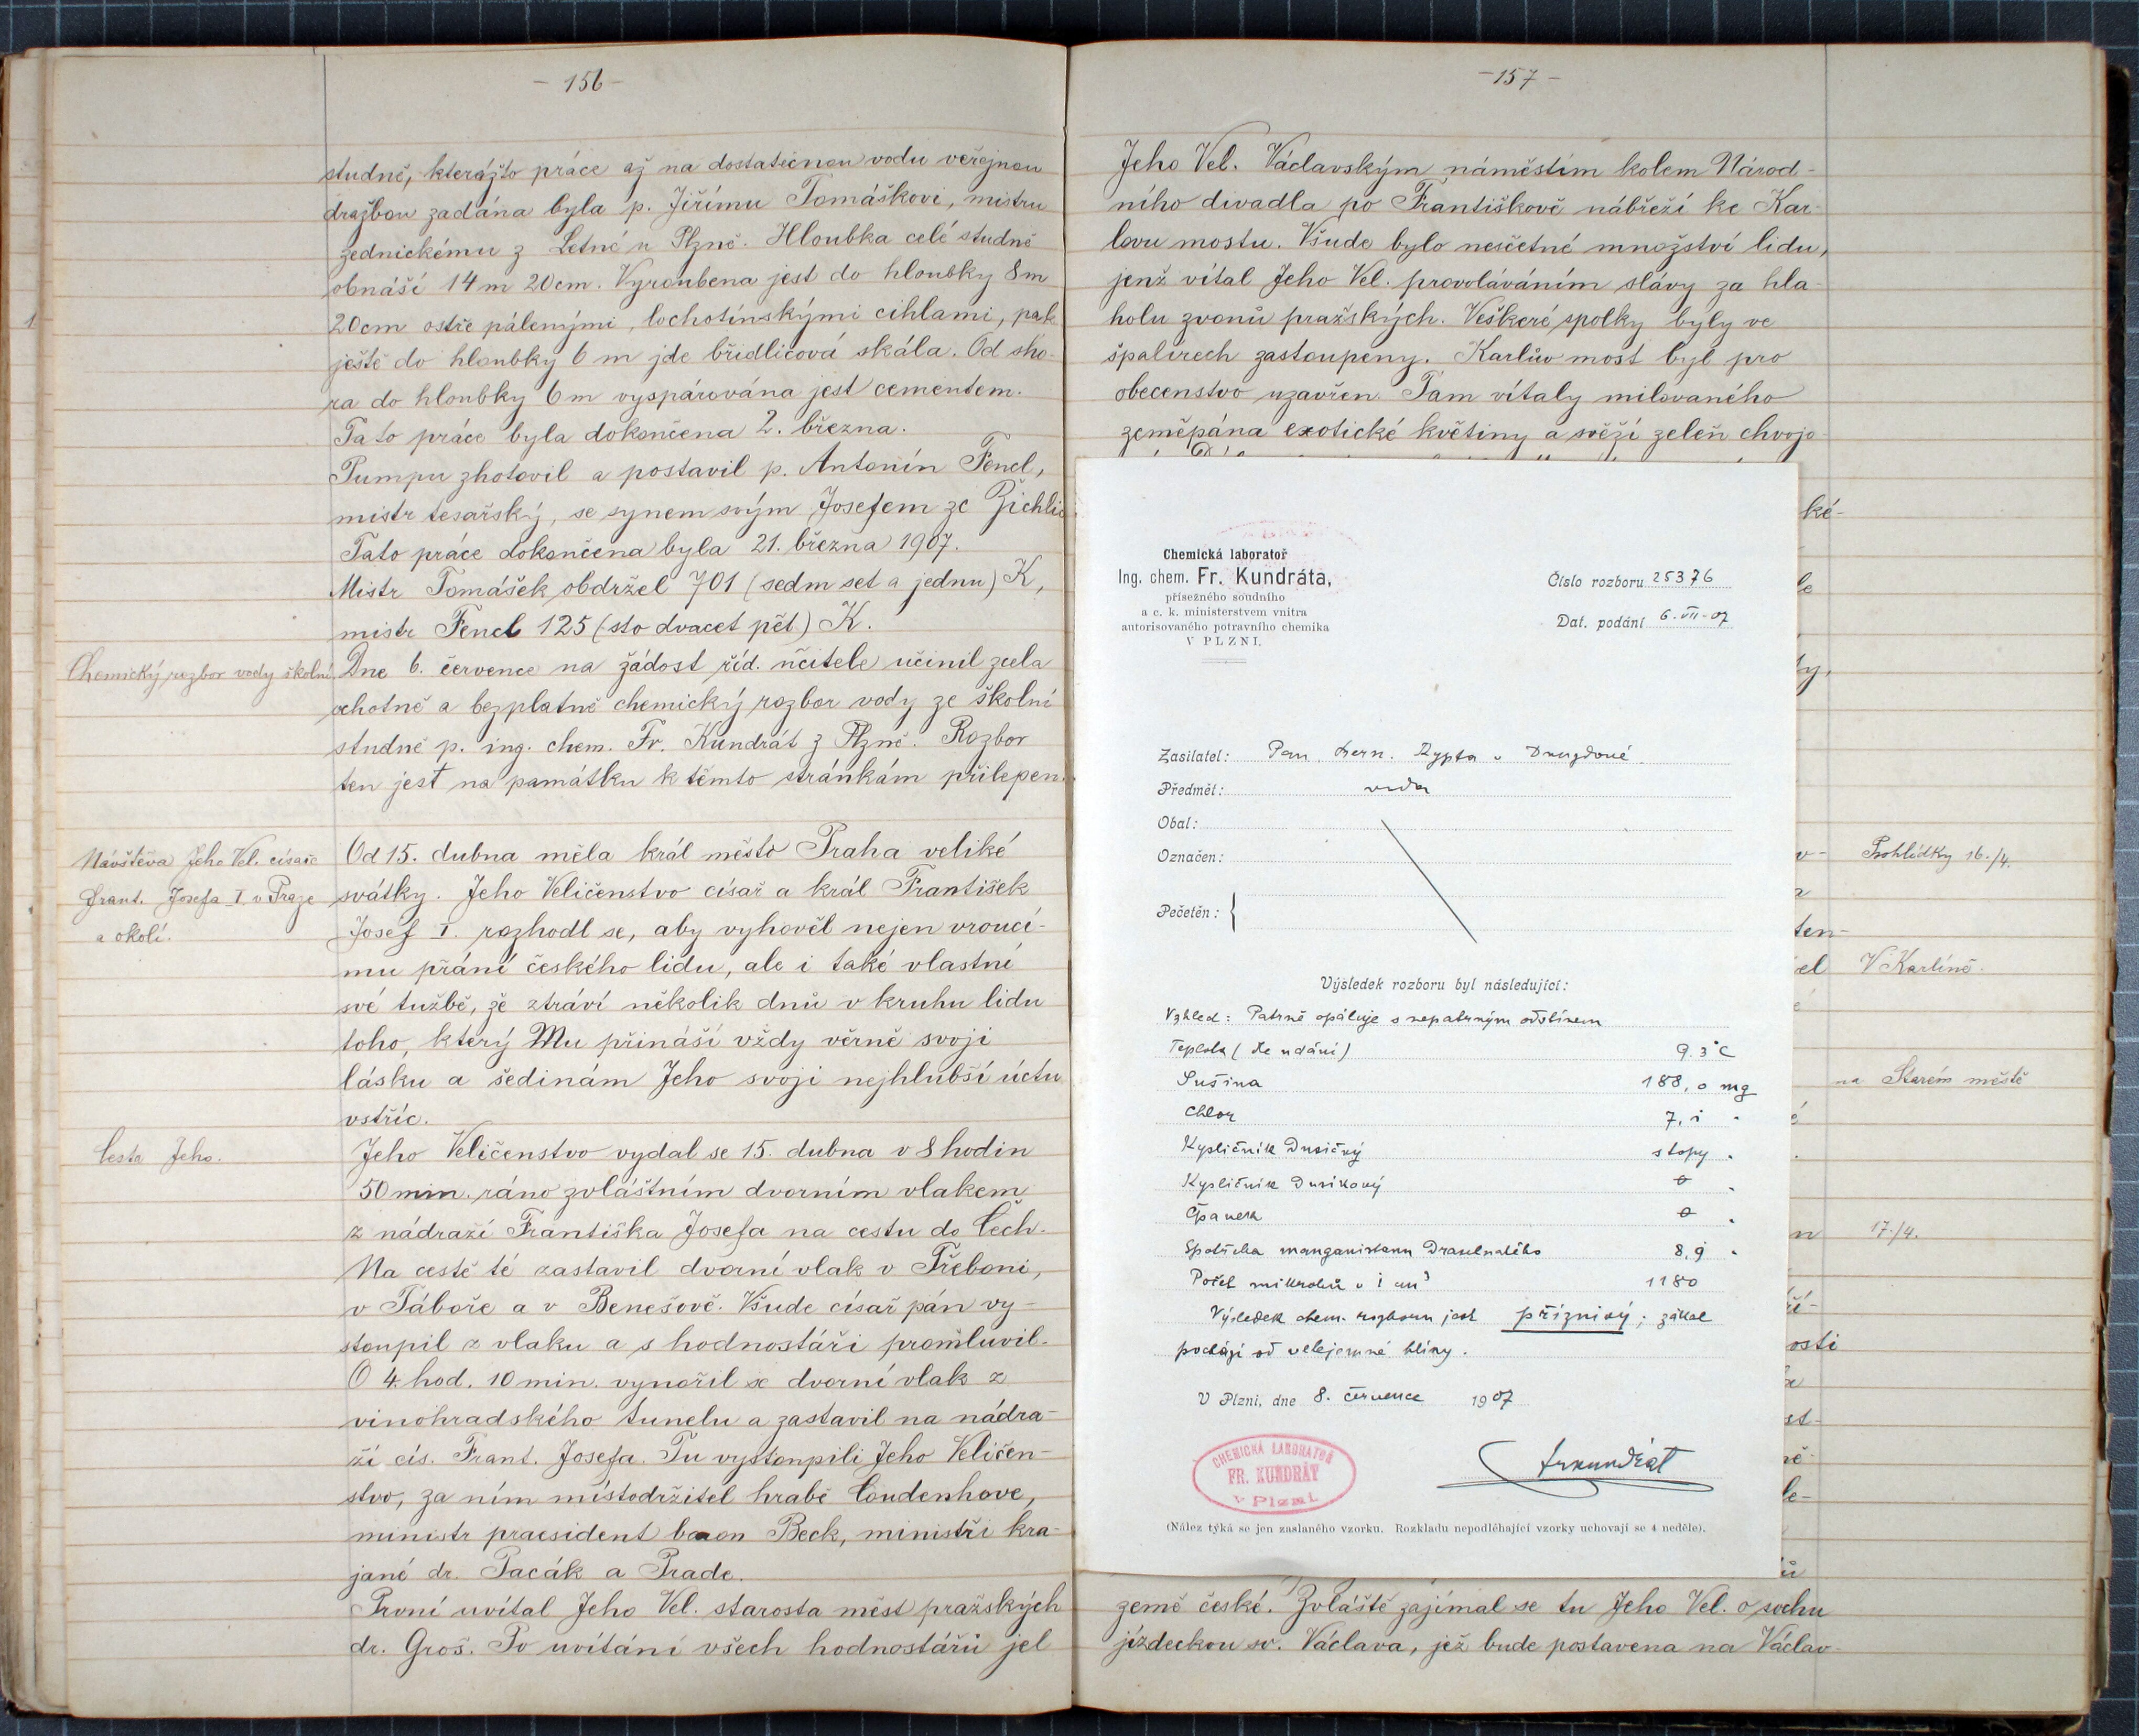 - 156 -
studně, kterážto práce až na dostatečnou vodu veřejnou
dražbou zadána byla p. Jiřímu Tomáškovi, mistru
zednickému z Letné u Plzně. Hloubka celé studně
obnáší 14 m 20 cm. Vyroubena jest do hloubky 8 m
20 cm ostře pálenými, lochotínskými cihlami, pak
ještě do hloubky 6 m jde břidlicová skála. Od sho-
ra do hloubky 6 m vyspárována jest cementem.
Tato práce byla dokončena 2. března.
Pumpu zhotovil a postavil p. Antonín Fencl,
mistr tesařský, se synem svým Josefem ze Žichlic
Tato práce dokončena byla 21. března 1907.
Mistr Tomášek obdržel 701 (sedm set a jednu) K,
mistr Fencl 125 (sto dvacet pět) K.
Chemický rozbor vody školní.
Dne 6. července na žádost říd. učitele učinil zcela
ochotně a bezplatně chemický rozbor vody ze školní
studně p. ing. chem. Fr. Kundrát z Plzně. Rozbor
ten jest na památku k těmto stránkám přilepen.
Návštěva Jeho Vel. císaře
Frant. Josefa I. v Praze
a okolí.
Od 15. dubna měla král město Praha veliké
svátky. Jeho Veličenstvo císař a král František
Josef I. rozhodl se, aby vyhověl nejen vroucí-
mu přání českého lidu, ale i také vlastní
své tužbě, že ztráví několik dnů v kruhu lidu
toho, který Mu přináší vždy věrně svoji
lásku a šedinám Jeho svoji nejhlubší úctu
vstříc.
Cesta Jeho.
Jeho Veličenstvo vydal se 15. dubna v 8 hodin
50 min. ráno zvláštním dvorním vlakem
z nádraží Františka Josefa na cestu do Čech.
Na cestě té zastavil dvorní vlak v Třeboni,
v Táboře a v Benešově. Všude císař pán vy-
stoupil z vlaku a s hodnostáři promluvil.
O 4. hod. 10 min. vynořil se dvorní vlak z
vinohradského tunelu a zastavil na nádra-
ží cís. Frant. Josefa. Tu vystoupili Jeho Veličen-
stvo, za ním místodržitel hrabě Coudenhove,
ministr praesident baron Beck, ministři kra-
jané dr. Pacák a Prade.
První uvítal Jeho Vel. starosta měst pražských
dr. Groš. Po uvítání všech hodnostářů jel
- 157 -
Jeho Vel. Václavským náměstím kolem Národ-
ního divadla po Františkově nábřeží ke Kar-
lovu mostu. Všude bylo nesčetné množství lidu,
jenž vítal Jeho Vel. provoláváním slávy za hla-
holu zvonů pražských. Veškeré spolky byly ve
špalírech zastoupeny. Karlův most byl pro
obecenstvo uzavřen. Tam vítaly milovaného
zeměpána exotické květiny a svěží zeleň chvojo-
Chemická laboratoř
Ing. chem. Fr. Kundráta,
přísežného soudního
a c. k. ministerstvem vnitra
autorisovaného potravního chemika
V PLZNI.
Číslo rozboru 25376
Dat. podání 6-VII-07
Zasilatel: Pan Bern. Rypta v Druzdové
Předmět: voda
Obal:
Označen:
Pečetěn: {
Výsledek rozboru byl následující:
Vzhled: Patrně opáluje s nepatrným odstínem
Teplota (dle udání) 9.3°C
Sušina 188,0 mg
Chlor 7,1 "
Kysličník Dusičný stopy "
Kysličník Dusíkový 0 "
Čpavek 0 "
Spotřeba manganistanu Draselnatého 8,9 "
Počet mikrobů v 1 cm³ 1180
Výsledek chem. rozboru jest příznivý; zákal
pochází od velejemné hlíny.
V Plzni, dne 8. července 1907
Fr Kundrát
CHEMICKÁ LABORATOŘ
FR. KUNDRÁT
v Plzni
(Nález týká se jen zaslaného vzorku. Rozkladu nepodléhající vzorky uchovají se 4 neděle).
ké-
Prohlídky 16./4.
ten-
el
V Karlíně.
na Starém městě
17./4.
osti
země české. Zvláště zajímal se tu Jeho Vel. o sochu
jízdeckou sv. Václava, jež bude postavena na Václav-